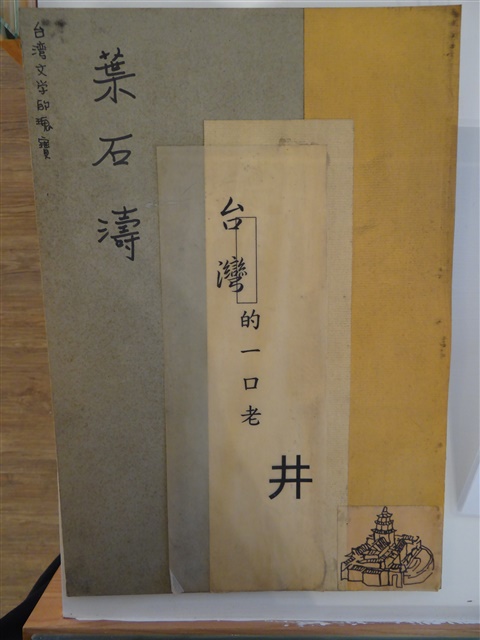 台灣的一口老井
葉石濤
台湾文学的瑰寶